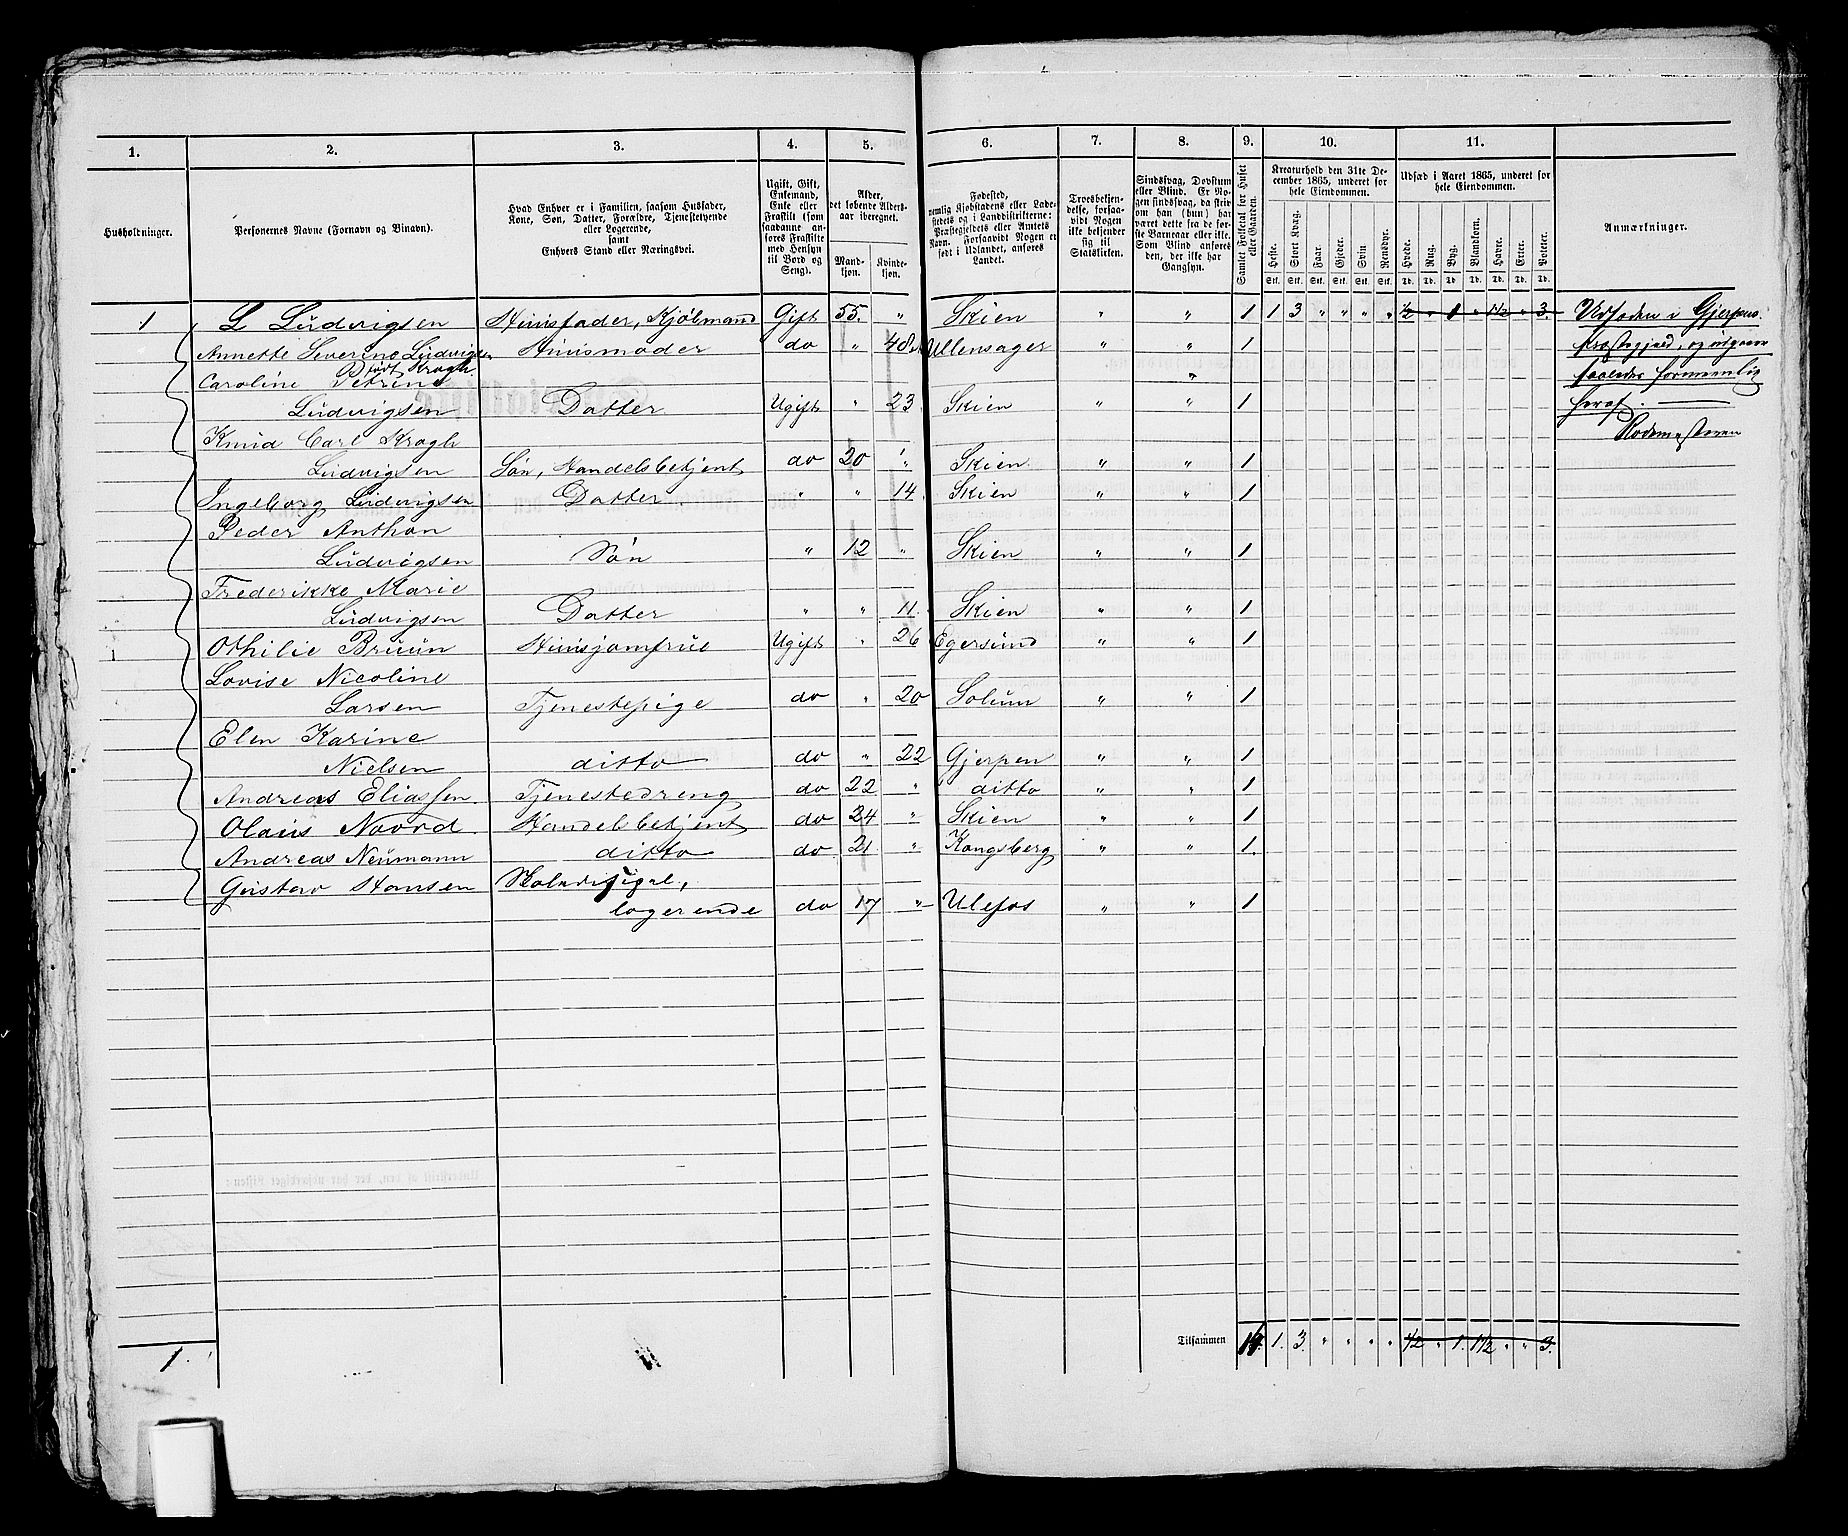 1. 2. 3. 4. 5. 6. 7. 8. 9. 10. 11.
Husholdninger.
Personernes Navne (Fornavn og Binavn).
Hvad Enhver er i Familien, saasom Husfader,
Kone, Søn, Datter, Forældre, Tjenestetyende
eller Logerende,
samt
Enhvers Stand eller Næringsvei.
Ugift, Gift,
Enkemand,
Enke eller
Fraskilt (som
saadanne an-
føres Fraskilte
med Hensyn
til Bord og
Seng).
Alder,
det løbende Alders-
aar iberegnet.
Mand-
kjøn.
Kvinde-
kjøn.
Fødested,
nemlig Kjøbstadens eller Lade-
stedets og i Landdistrikterne:
Præstegjeldets eller Amtets
Navn. Forsaavidt Nogen er
født i Udlandet, anføres
Landet.
Troesbekjen-
delse, forsaa-
vidt Nogen
ikke bekjender
sig til
Statskirken.
Sindssvag, Døvstum
eller Blind. Er No-
gen sindssvag, da skriv
om han (hun) har
været dette fra de før-
ste Barneaar eller ikke.
Som Blind anføres
den, der ikke har
Gangsyn.
Samlet Folketal for Huset
eller Gaarden.
Kreaturhold den 31te De-
cember 1865, underet for
hele Eiendommen.
Heste. Stort Kvæg. Faar. Gjeder. Svin Rensdyr.
Stk. Stk. Stk. Stk. Stk. Stk.
Udsæd i Aaret 1865, underet for
hele Eiendommen.
Hvede. Rug. Byg. Blandkorn. Havre. Erter. Poteter.
Td. Td. Td. Td. Td. Td. Td.
Anmærkninger.
1 L Ludvigsen Huusfader, Kjøbmand Gift 55. " Skien " " 1 1 3 " " " " ½ " 1 " 1½ " 3. Udsæden i Gjerpens
Annette Severine Ludvigsen Huusmoder do " 48 Ullensager " " 1 Præstegjeld, og udgaaer
født Krogh.
Caroline Petrine " saaledes formeentlig
Ludvigsen Datter Ugift " 23 Skien " " 1 heraf.
Knud Carl Krogh Rodemesteren
Ludvigsen Søn, Handelsbetjent do 20 " Skien " " 1
Ingeborg Ludvigsen Datter " " 14 Skien " " 1
Peder Anthon
Ludvigsen Søn " 12 " Skien " " 1
Frederikke Marie
Ludvigsen Datter " " 11. Skien " " 1
Othilie Bruun Huusjomfrue Ugift " 26 Egersund " " 1
Lovise Nicoline
Larsen Tjenestepige do " 20 Solum " " 1
Elen Karine
Nielsen ditto do " 22 Gjerpen " " 1
Andreas Eliassen Tjenestedreng do 22 " ditto " " 1
Olaus Noord Handelsbetjent do 24 " Skien " " 1
Andreas Neumann ditto do 21 " Kongsberg " " 1.
Gustav Hansen
logerende do 17 " Ulefos " " 1
1. Tilsammen 14. 1. 3. " " " " ½ " 1. 1½ " " 3.